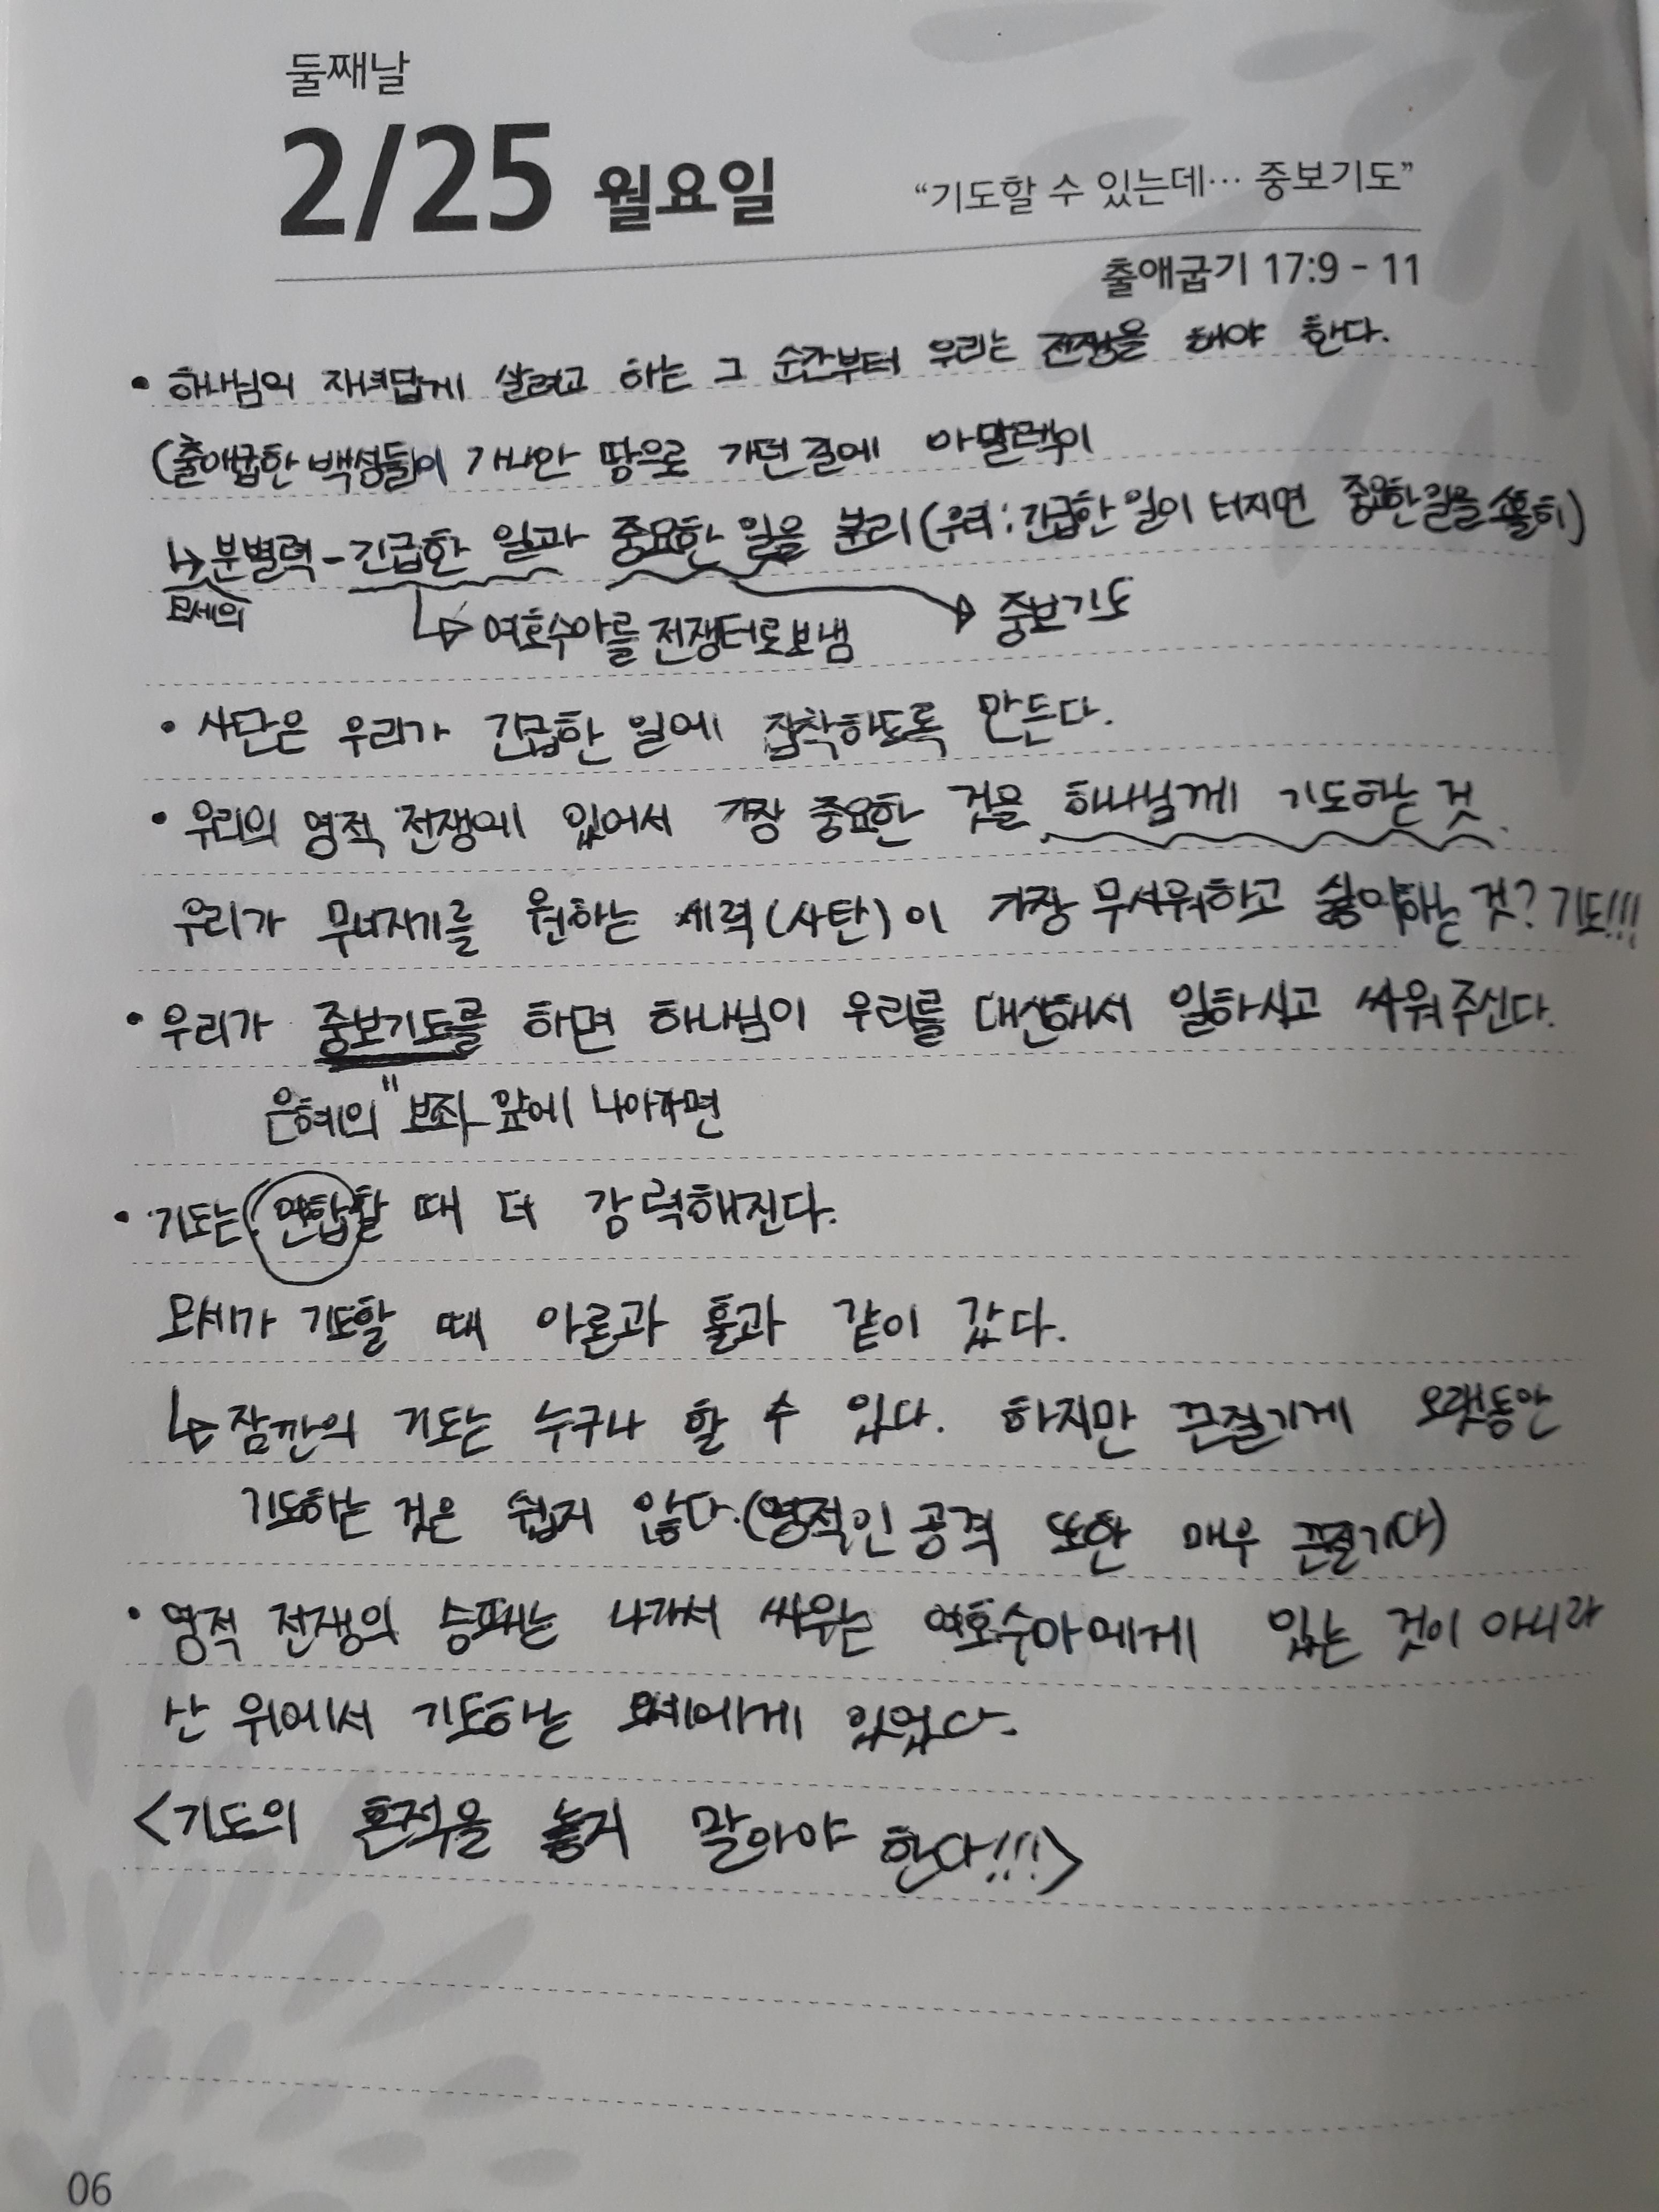 둘째날
2/25 월요일
“기도할 수 있는데… 중보기도”
출애굽기 17:9 - 11
• 하나님의 자녀답게 살려고 하는 그 순간부터 우리는 전쟁을 해야 한다.
(출애굽한 백성들이 가나안 땅으로 가던 길에 아말렉이
↳ 분별력 - 긴급한 일과 중요한 일을 분리 (우리 : 긴급한 일이 터지면 중요한 일을 소홀히)
모세의
↳ 여호수아를 전쟁터로 보냄 → 중보기도
• 사단은 우리가 긴급한 일에 집착하도록 만든다.
• 우리의 영적 전쟁에 있어서 가장 중요한 것은 하나님께 기도하는 것.
우리가 무너지기를 원하는 세력(사탄)이 가장 무서워하고 싫어하는 것? 기도!!!
• 우리가 중보기도를 하면 하나님이 우리를 대신해서 일하시고 싸워주신다.
"
은혜의 보좌 앞에 나아가면
• 기도는 연합할 때 더 강력해진다.
모세가 기도할 때 아론과 훌과 같이 갔다.
↳ 잠깐의 기도는 누구나 할 수 있다. 하지만 끈질기게 오랫동안
기도하는 것은 쉽지 않다. (영적인 공격 또한 매우 끈질기다)
• 영적 전쟁의 승패는 나가서 싸우는 여호수아에게 있는 것이 아니라
산 위에서 기도하는 모세에게 있었다.
<기도의 흔적을 놓지 말아야 한다!!!>
06